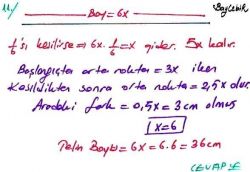 11/
Boy=6x
BayÇebir
1/6 sı kesilirse ⇒ 6x. 1/6 = x gider. 5x kalır.
Başlangıçta orta nokta = 3x iken
Kesildikten sonra orta nokta = 2,5x olur.
Aradaki fark = 0,5x = 3cm olmuş
x=6
Telin Boyu = 6x = 6.6 = 36cm
CEVAP:E